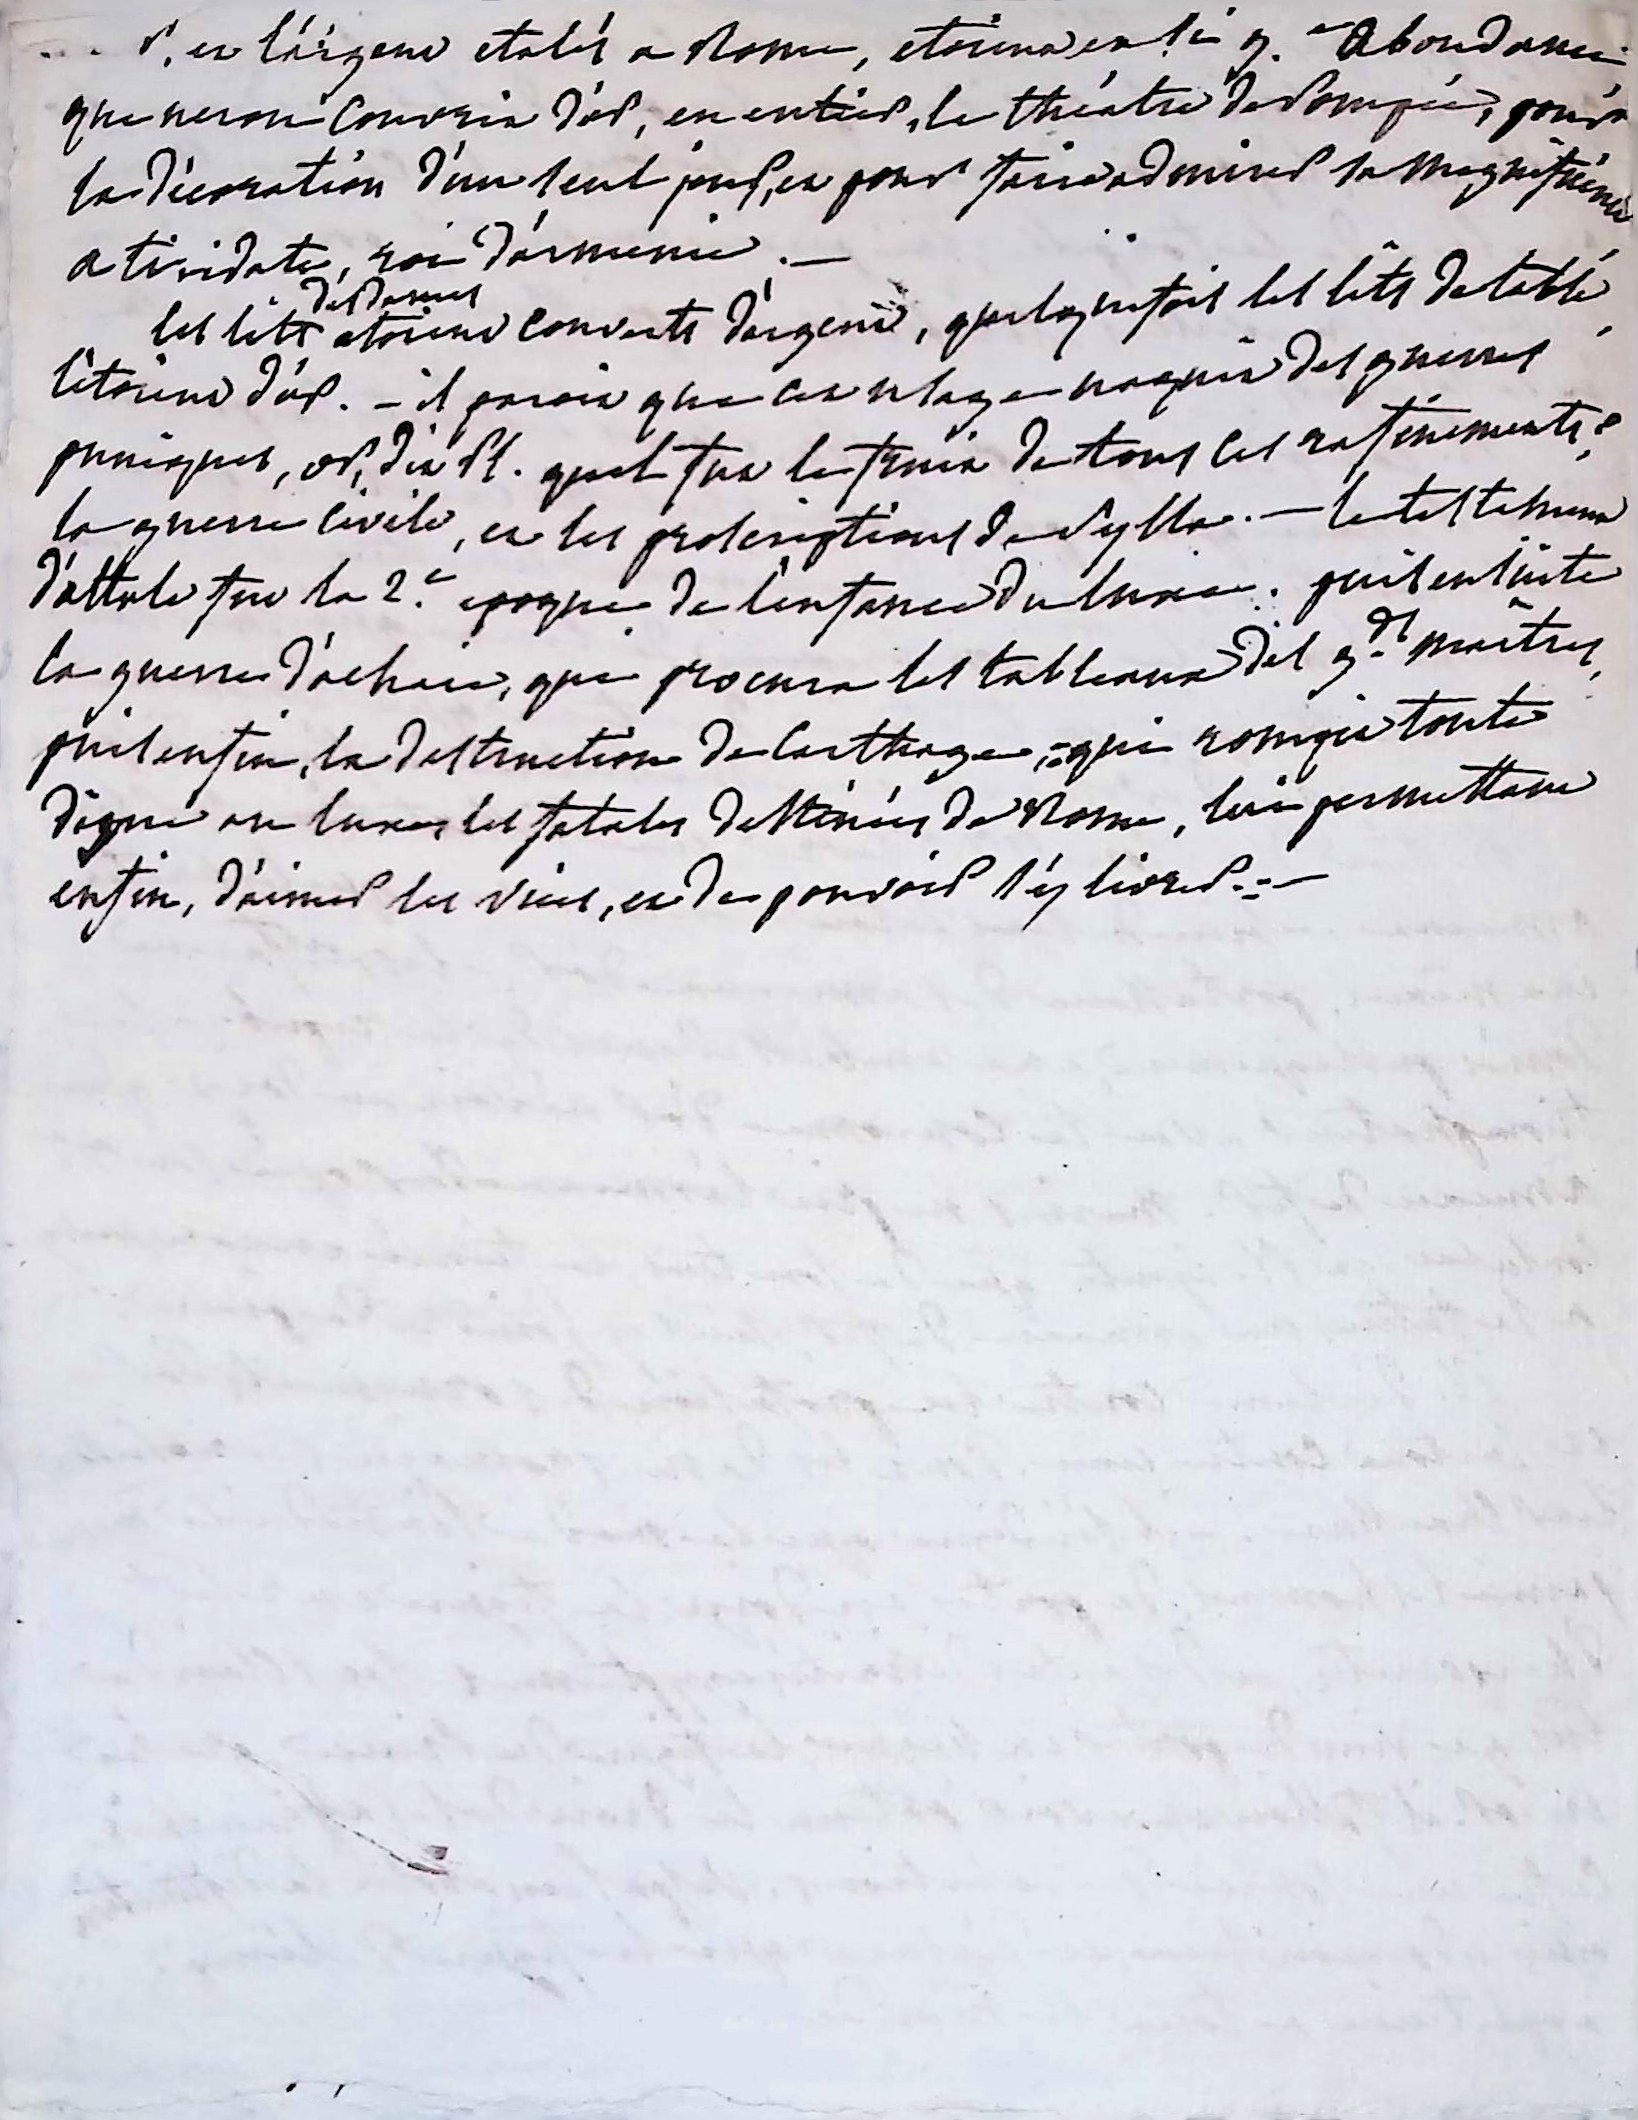 et l'argent etalés a Rome, etoient en si g. abondance
que neron couvrit d'or, en entier, le théatre de Pompée, pour
la décoration d'un seul jour, et pour faire admirer sa magnificence
a tiridate, roi d'armenie. —
des Dames
les lits etoient couverts d'argent, quelquefois les lits de table
l'etoient d'or. - il paroit que cet usage naquit des guerres
puniques, or, dit Pl. quel fut le fruit de tous ces rafinements?
la guerre civile, et les proscriptions de Sylla. — le testament
d'attale fut la 2.e epoque de l'enfance du luxe. puis ensuite
la guerre d'achaie, qui procura les tableaux des g.ds maîtres,
puis enfin, la destruction de Carthage, qui rompit toute
digue au luxe, les fatales destinées de Rome, lui permettant
enfin, d'aimer les vices, et de pouvoir s'y livrer. —